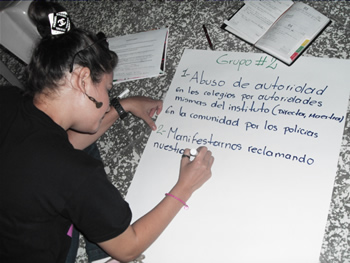 Grupo #2
1- Abuso de autoridad
En los colegios por autoridades
mismas del instituto (Director, Maestros)
En la comunidad por los policias
2- Manifestarnos reclamando
nuestro